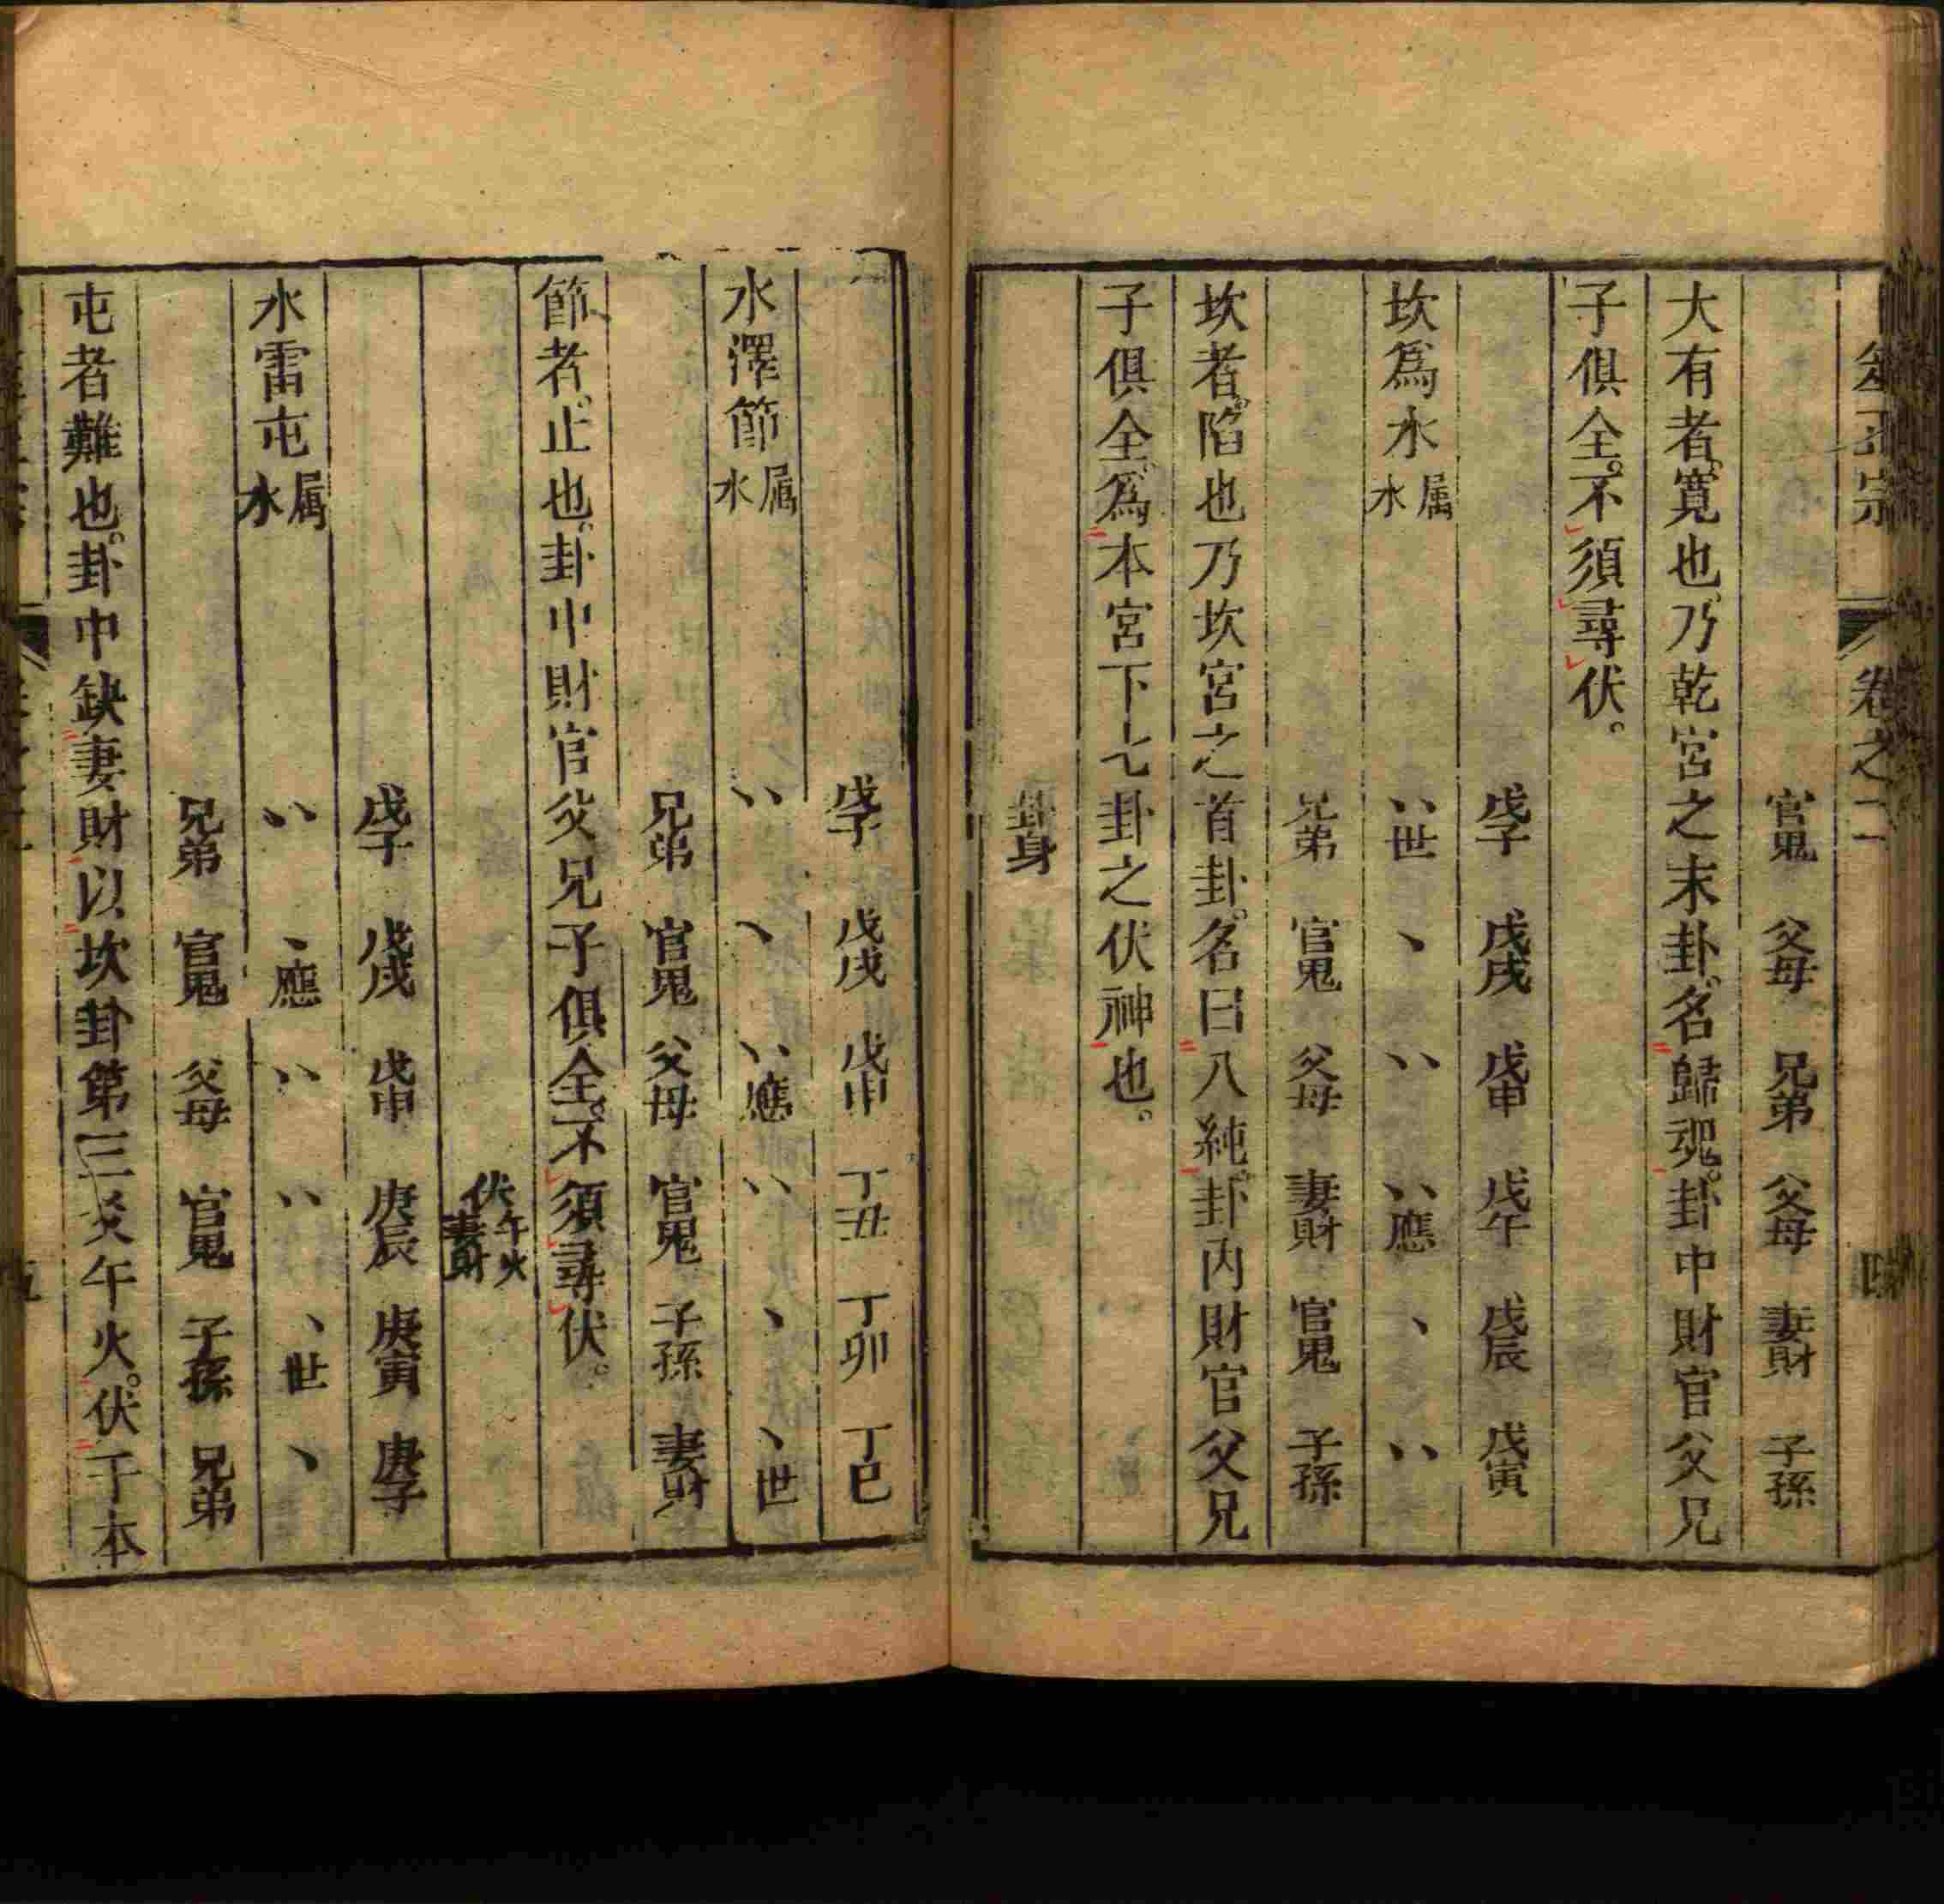 卷之二
四
官鬼 父母 兄弟 父母 妻財 子孫
大有者寬也乃乾宮之末卦名歸魂卦中財官父兄
子俱全不須尋伏
戊子 戊戌 戊申 戊午 戊辰 戊寅
坎爲水屬水 〃世 、 〃 〃應 、 〃
兄弟 官鬼 父母 妻財 官鬼 子孫
坎者陷也乃坎宮之首卦名曰八純卦內財官父兄
子俱全爲本宮下七卦之伏神也
卦身
戊子 戊戌 戊申 丁丑 丁卯 丁巳
水澤節屬水 〃 、 〃應 〃 、 、世
兄弟 官鬼 父母 官鬼 子孫 妻財
節者止也卦中財官父兄子俱全不須尋伏
伏午火妻財
戊子 戊戌 戊申 庚辰 庚寅 庚子
水雷屯屬水 〃 、應 〃 〃 、世 、
兄弟 官鬼 父母 官鬼 子孫 兄弟
屯者難也卦中缺妻財以坎卦第三爻午火伏于本